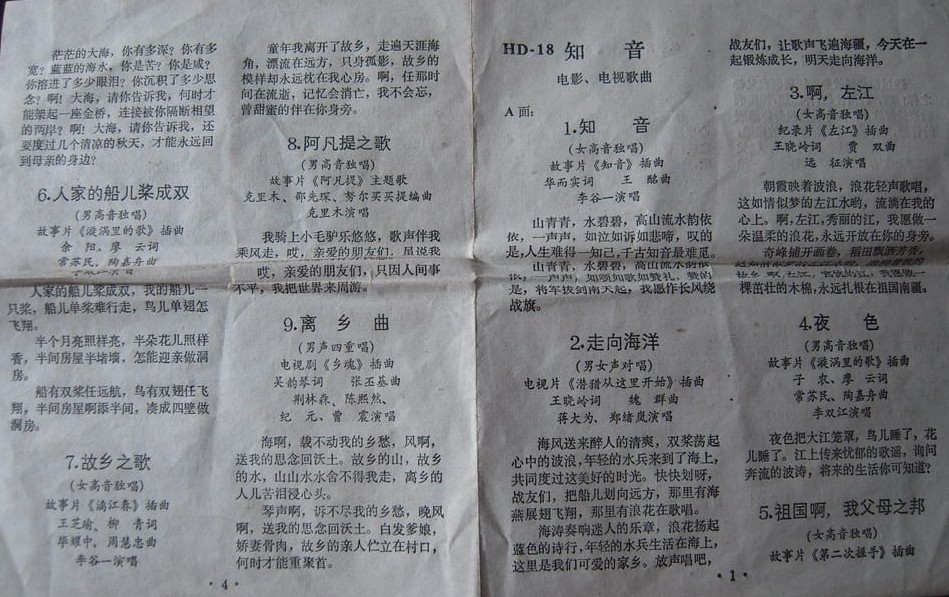 茫茫的大海，你有多深？你有多
宽？蓝蓝的海水，你是苦？你是咸？
你溶进了多少眼泪？你沉积了多少思
念？啊！大海，请你告诉我，何时才
能架起一座金桥，连接被你隔断相望
的两岸？啊！大海，请你告诉我，还
要度过几个清凉的秋天，才能永远回
到母亲的身边？
6.人家的船儿桨成双
(男高音独唱)
故事片《漩涡里的歌》插曲
余 阳。廖 云词
常苏民、陶嘉舟曲
人家的船儿桨成双，我的船儿一
只桨，船儿单桨难行走，鸟儿单翅怎
飞翔。
半个月亮照样亮，半朵花儿照样
香，半间房屋半堵墙，怎能迎亲做洞
房。
船有双桨任远航，鸟有双翅任飞
翔，半间房屋啊添半间，凑成四壁做
洞房。
7.故乡之歌
(女高音独唱)
故事片《漓江春》插曲
王芝瑜、柳 青词
毕耀中、周慧忠曲
李谷一演唱
童年我离开了故乡，走遍天涯海
角，漂流在远方，只身孤影，故乡的
模样却永远枕在我心房。啊，任那时
间在流逝，记忆会消亡，我不会忘，
曾甜蜜的伴在你身旁。
8.阿凡提之歌
(男高音独唱)
故事片《阿凡提》主题歌
克里木、邵光琛、努尔买买提编曲
克里木演唱
我骑上小毛驴乐悠悠，歌声伴我
乘风走，哎，亲爱的朋友们，虽说我
哎，亲爱的朋友们，只因人间事
不平，我把世界来周游。
9.离 乡 曲
(男声四重唱)
电视剧《乡魂》插曲
吴韵琴词 张丕基曲
荆林森、陈熙然、
纪 元、曹 震演唱
海啊，载不动我的乡愁，风啊，
送我的思念回沃土。故乡的山，故乡
的水，山山水水舍不得我走，离乡的
人儿苦泪浸心头。
琴声啊，诉不尽我的乡愁，晚风
啊，送我的思念回沃土。白发爹娘，
娇妻骨肉，故乡的亲人伫立在村口，
何时才能重聚首。
· 4 ·
HD-18 知 音
电影、电视歌曲
A面：
1.知 音
(女高音独唱)
故事片《知音》插曲
华而实词 王 酩曲
李谷一演唱
山青青，水碧碧，高山流水韵依
依，一声声，如泣如诉如悲啼，叹的
是，人生难得一知己，千古知音最难觅。
山青青，水碧碧，高山流水韵依
是，将军拔剑南天起，我愿作长风绕
战旗。
2.走向海洋
(男女声对唱)
电视片《潜猎从这里开始》插曲
王晓岭词 魏 群曲
蒋大为、郑绪岚演唱
海风送来醉人的清爽，双桨荡起
心中的波浪，年轻的水兵来到了海上，
共同度过这美好的时光。快快划呀，
战友们，把船儿划向远方，那里有海
燕展翅飞翔，那里有浪花在歌唱。
海涛奏响迷人的乐章，浪花扬起
蓝色的诗行，年轻的水兵生活在海上，
这里是我们可爱的家乡。放声唱吧，
战友们，让歌声飞遍海疆，今天在一
起锻炼成长，明天走向海洋。
3.啊，左江
(女高音独唱)
纪录片《左江》插曲
王晓岭词 贾 双曲
远 征演唱
朝霞映着波浪，浪花轻声歌唱，
这如情似梦的左江水哟，流淌在我的
心上。啊，左江，秀丽的江，我愿做一
朵温柔的浪花，永远开放在你的身旁。
奇峰铺开画卷，稻田飘洒芳香，
棵茁壮的木棉，永远扎根在祖国南疆。
4.夜 色
(男高音独唱)
故事片《漩涡里的歌》插曲
子 农、廖 云词
常苏民、陶嘉舟曲
李双江演唱
夜色把大江笼罩，鸟儿睡了，花
儿睡了。江上传来忧郁的歌谣，询问
奔流的波涛，将来的生活你可知道？
5.祖国啊，我父母之邦
(女高音独唱)
故事片《第二次握手》插曲
· 1 ·